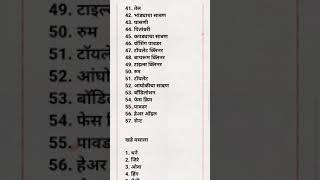 41. तेल
42. भांड्याचा साबण
43. घासणी
44. पितांबरी
45. कपड्याचा साबण
46. वॉशिंग पावडर
47. टॉयलेट क्लिनर
48. बाथरूम क्लिनर
49. टाइल्स क्लिनर
50. रुम
51. टॉयलेट
52. आंघोळीचा साबण
53. बॉडिलोशन
54. फेस क्रिम
55. पावडर
56. हेअर ऑइल
57. सेन्ट
खडे मसाला
1. धने
2. जिरे
3. ओवा
4. हिंग
49. टाइल
50. रुम
51. टॉयले
52. आंघो
53. बॉडि
54. फेस
55. पावड
56. हेअर